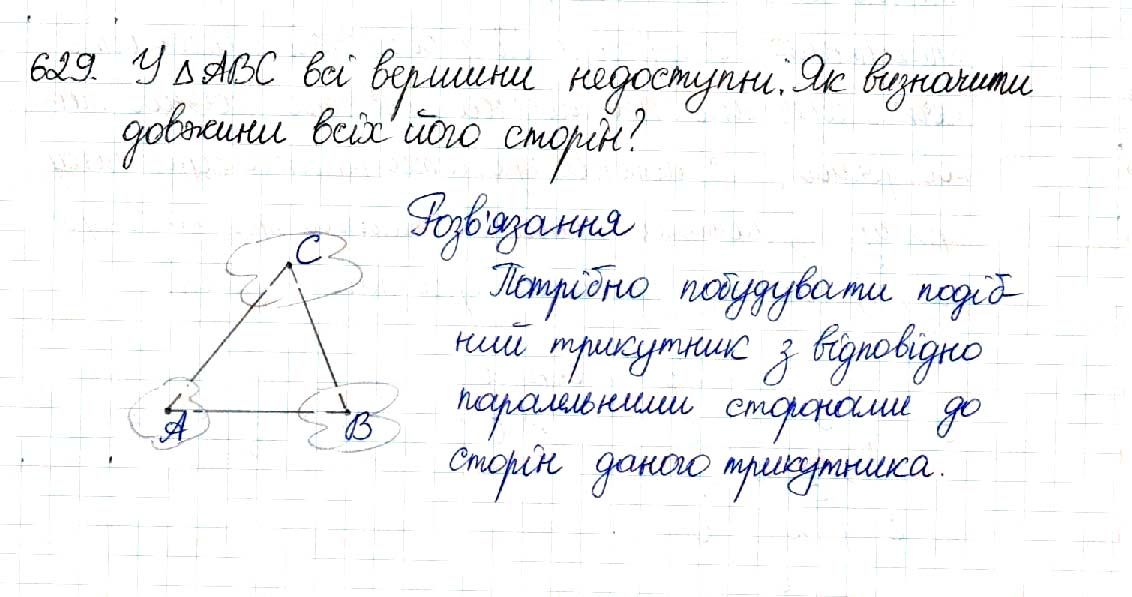 629. У △ABC всі вершини недоступні. Як визначити
довжини всіх його сторін?
Розв'язання
C
Потрібно побудувати подіб-
ний трикутник з відповідно
паралельними сторонами до
A B
сторін даного трикутника.